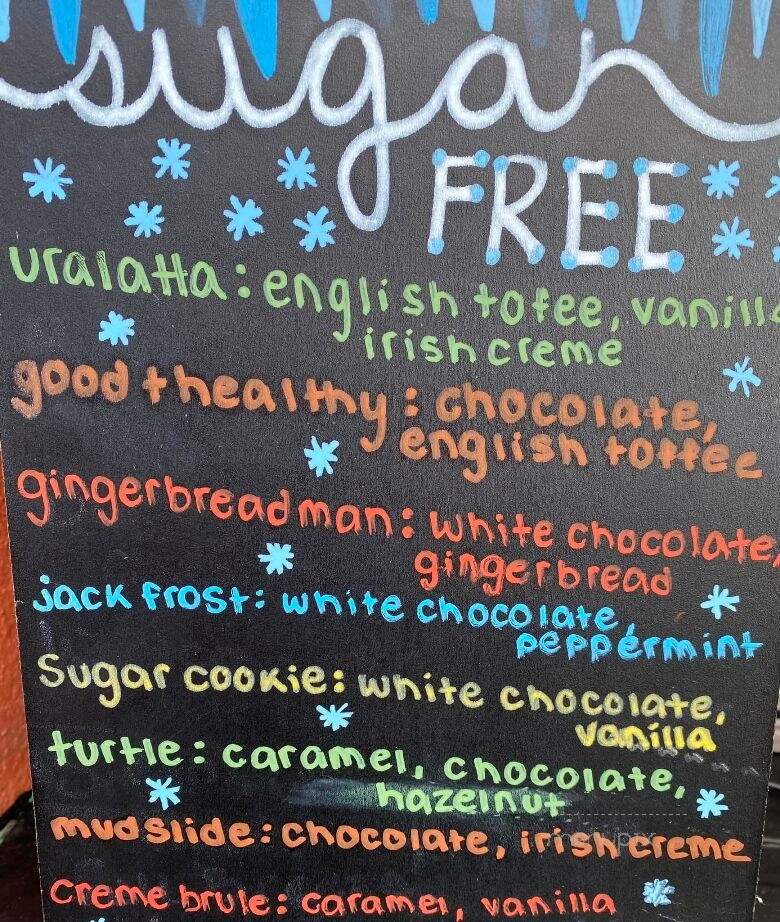 sugar
FREE
uralatta: english tofee, vanilla
irish creme
good + healthy: chocolate,
english toffee
gingerbread man: white chocolate,
gingerbread
jack frost: white chocolate,
peppermint
Sugar cookie: white chocolate,
vanilla
turtle: caramel, chocolate,
hazelnut
mudslide: chocolate, irish creme
creme brule: caramel, vanilla